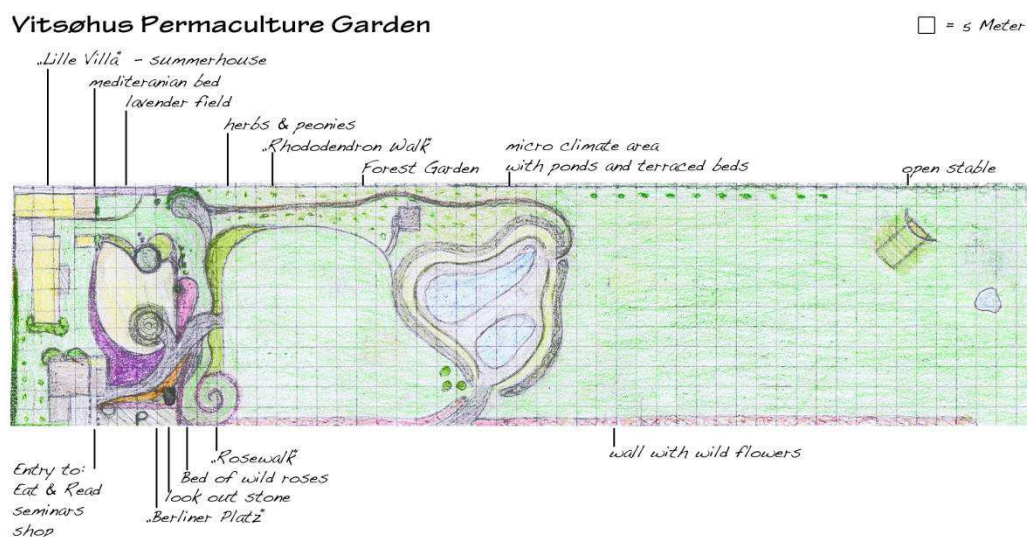 Vitsøhus Permaculture Garden
= 5 Meter
„Lille Villa" - summerhouse
mediteranian bed
lavender field
herbs & peonies
„Rhododendron Walk"
Forest Garden
micro climate area
with ponds and terraced beds
open stable
Entry to:
Eat & Read
seminars
shop
„Rosewalk"
Bed of wild roses
look out stone
„Berliner Platz"
wall with wild flowers